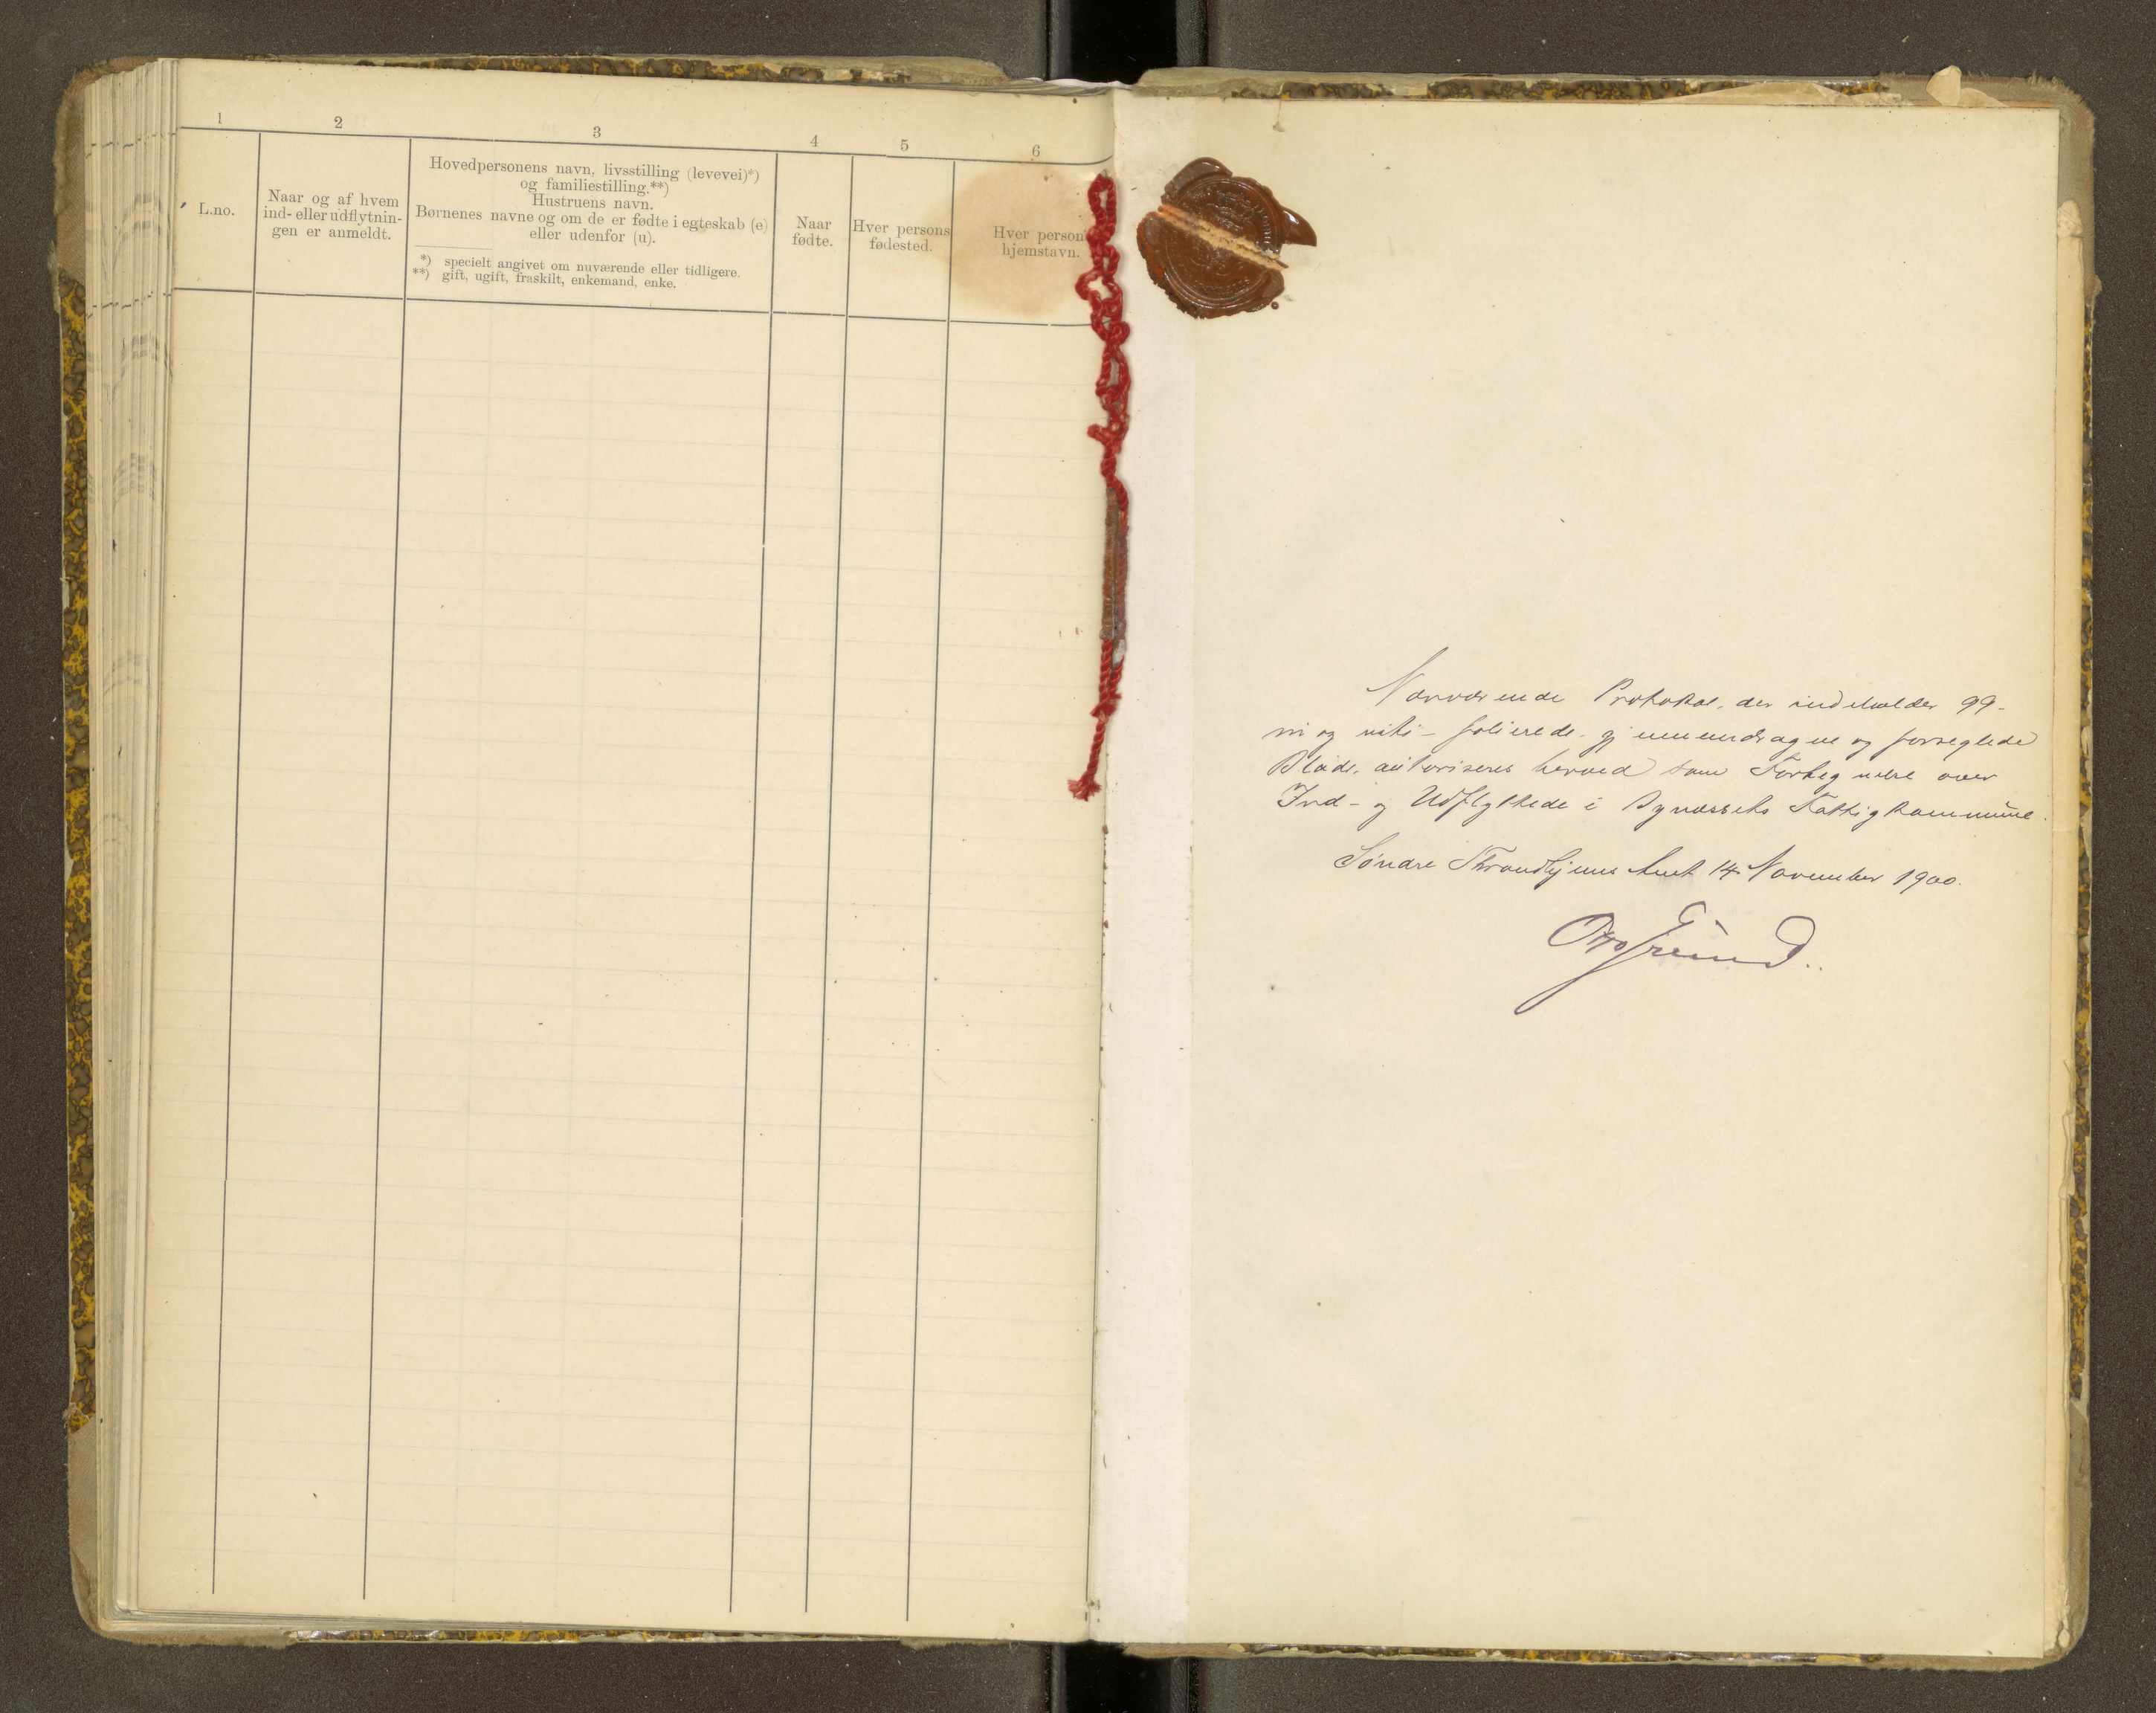 1
2
3
4
5
6
L.no.
Naar og af hvem
ind- eller udflytnin-
gen er anmeldt.
Hovedpersonens navn, livsstilling (levevei)*)
og familiestilling.**)
Hustruens navn.
Børnenes navne og om de er fødte i egteskab (e)
eller udenfor (u).
*) specielt angivet om nuværende eller tidligere.
**) gift, ugift, fraskilt, enkemand, enke.
Naar
fødte.
Hver persons
fødested.
Hver person
hjemstavn.
Nærværende Protokol, der indeholder 99-
ni og niti- folierede, gjennemdragne og forseglede
Blade, autoriseres herved som Fortegnelse over
Ind- og Udflyttede i Bynæssets Fattigkommune.
Søndre Throndhjems Amt 14 November 1900.